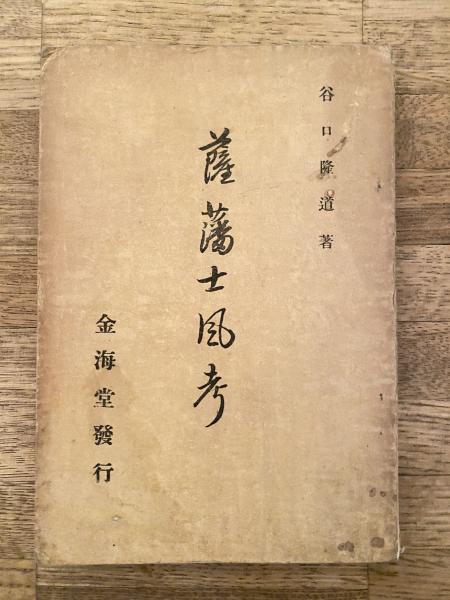 谷口隆道著
薩藩士風考
金海堂發行